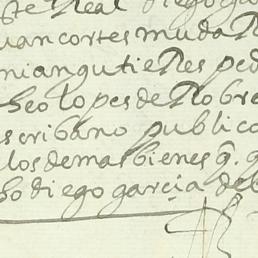 Real diego
Juan cortes muda
nian gutieRes ped
lopes de Robre
scribano publico
los demas bienes q̃. q
ho diego garçia de